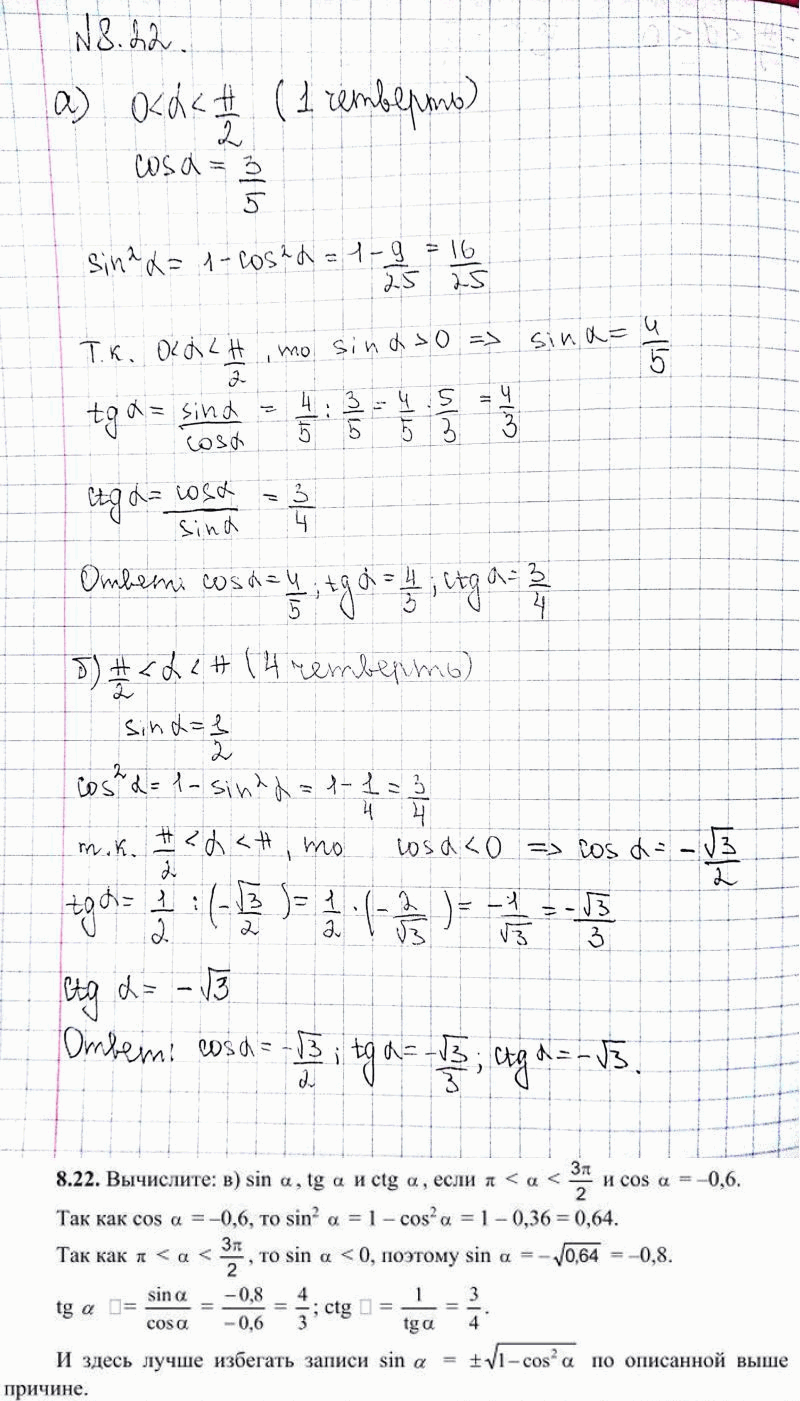 №8.22.
а) 0<α<π/2 (1 четверть)
cosα = 3/5
sin²α = 1-cos²α = 1-9/25 = 16/25
Т.к. 0<α<π/2, то sinα>0 => sinα = 4/5
tgα = sinα/cosα = 4/5 : 3/5 = 4/5 · 5/3 = 4/3
ctgα = cosα/sinα = 3/4
Ответ: cosα = 4/5; tgα = 4/3; ctgα = 3/4
б) π/2 < α < π (4 четверть)
sinα = 1/2
cos²α = 1 - sin²α = 1 - 1/4 = 3/4
т.к. π/2 < α < π, то cosα<0 => cosα = -√3/2
tgα = 1/2 : (-√3/2) = 1/2 · (-2/√3) = -1/√3 = -√3/3
ctg α = -√3
Ответ: cosα = -√3/2; tgα = -√3/3; ctgα = -√3.
8.22. Вычислите: в) sin α, tg α и ctg α, если π < α < 3π/2 и cos α = –0,6.
Так как cos α = –0,6, то sin² α = 1 – cos² α = 1 – 0,36 = 0,64.
Так как π < α < 3π/2, то sin α < 0, поэтому sin α = –√0,64 = –0,8.
tg α □= sin α/cos α = –0,8/–0,6 = 4/3; ctg □ = 1/tg α = 3/4.
И здесь лучше избегать записи sin α = ±√1–cos² α по описанной выше
причине.